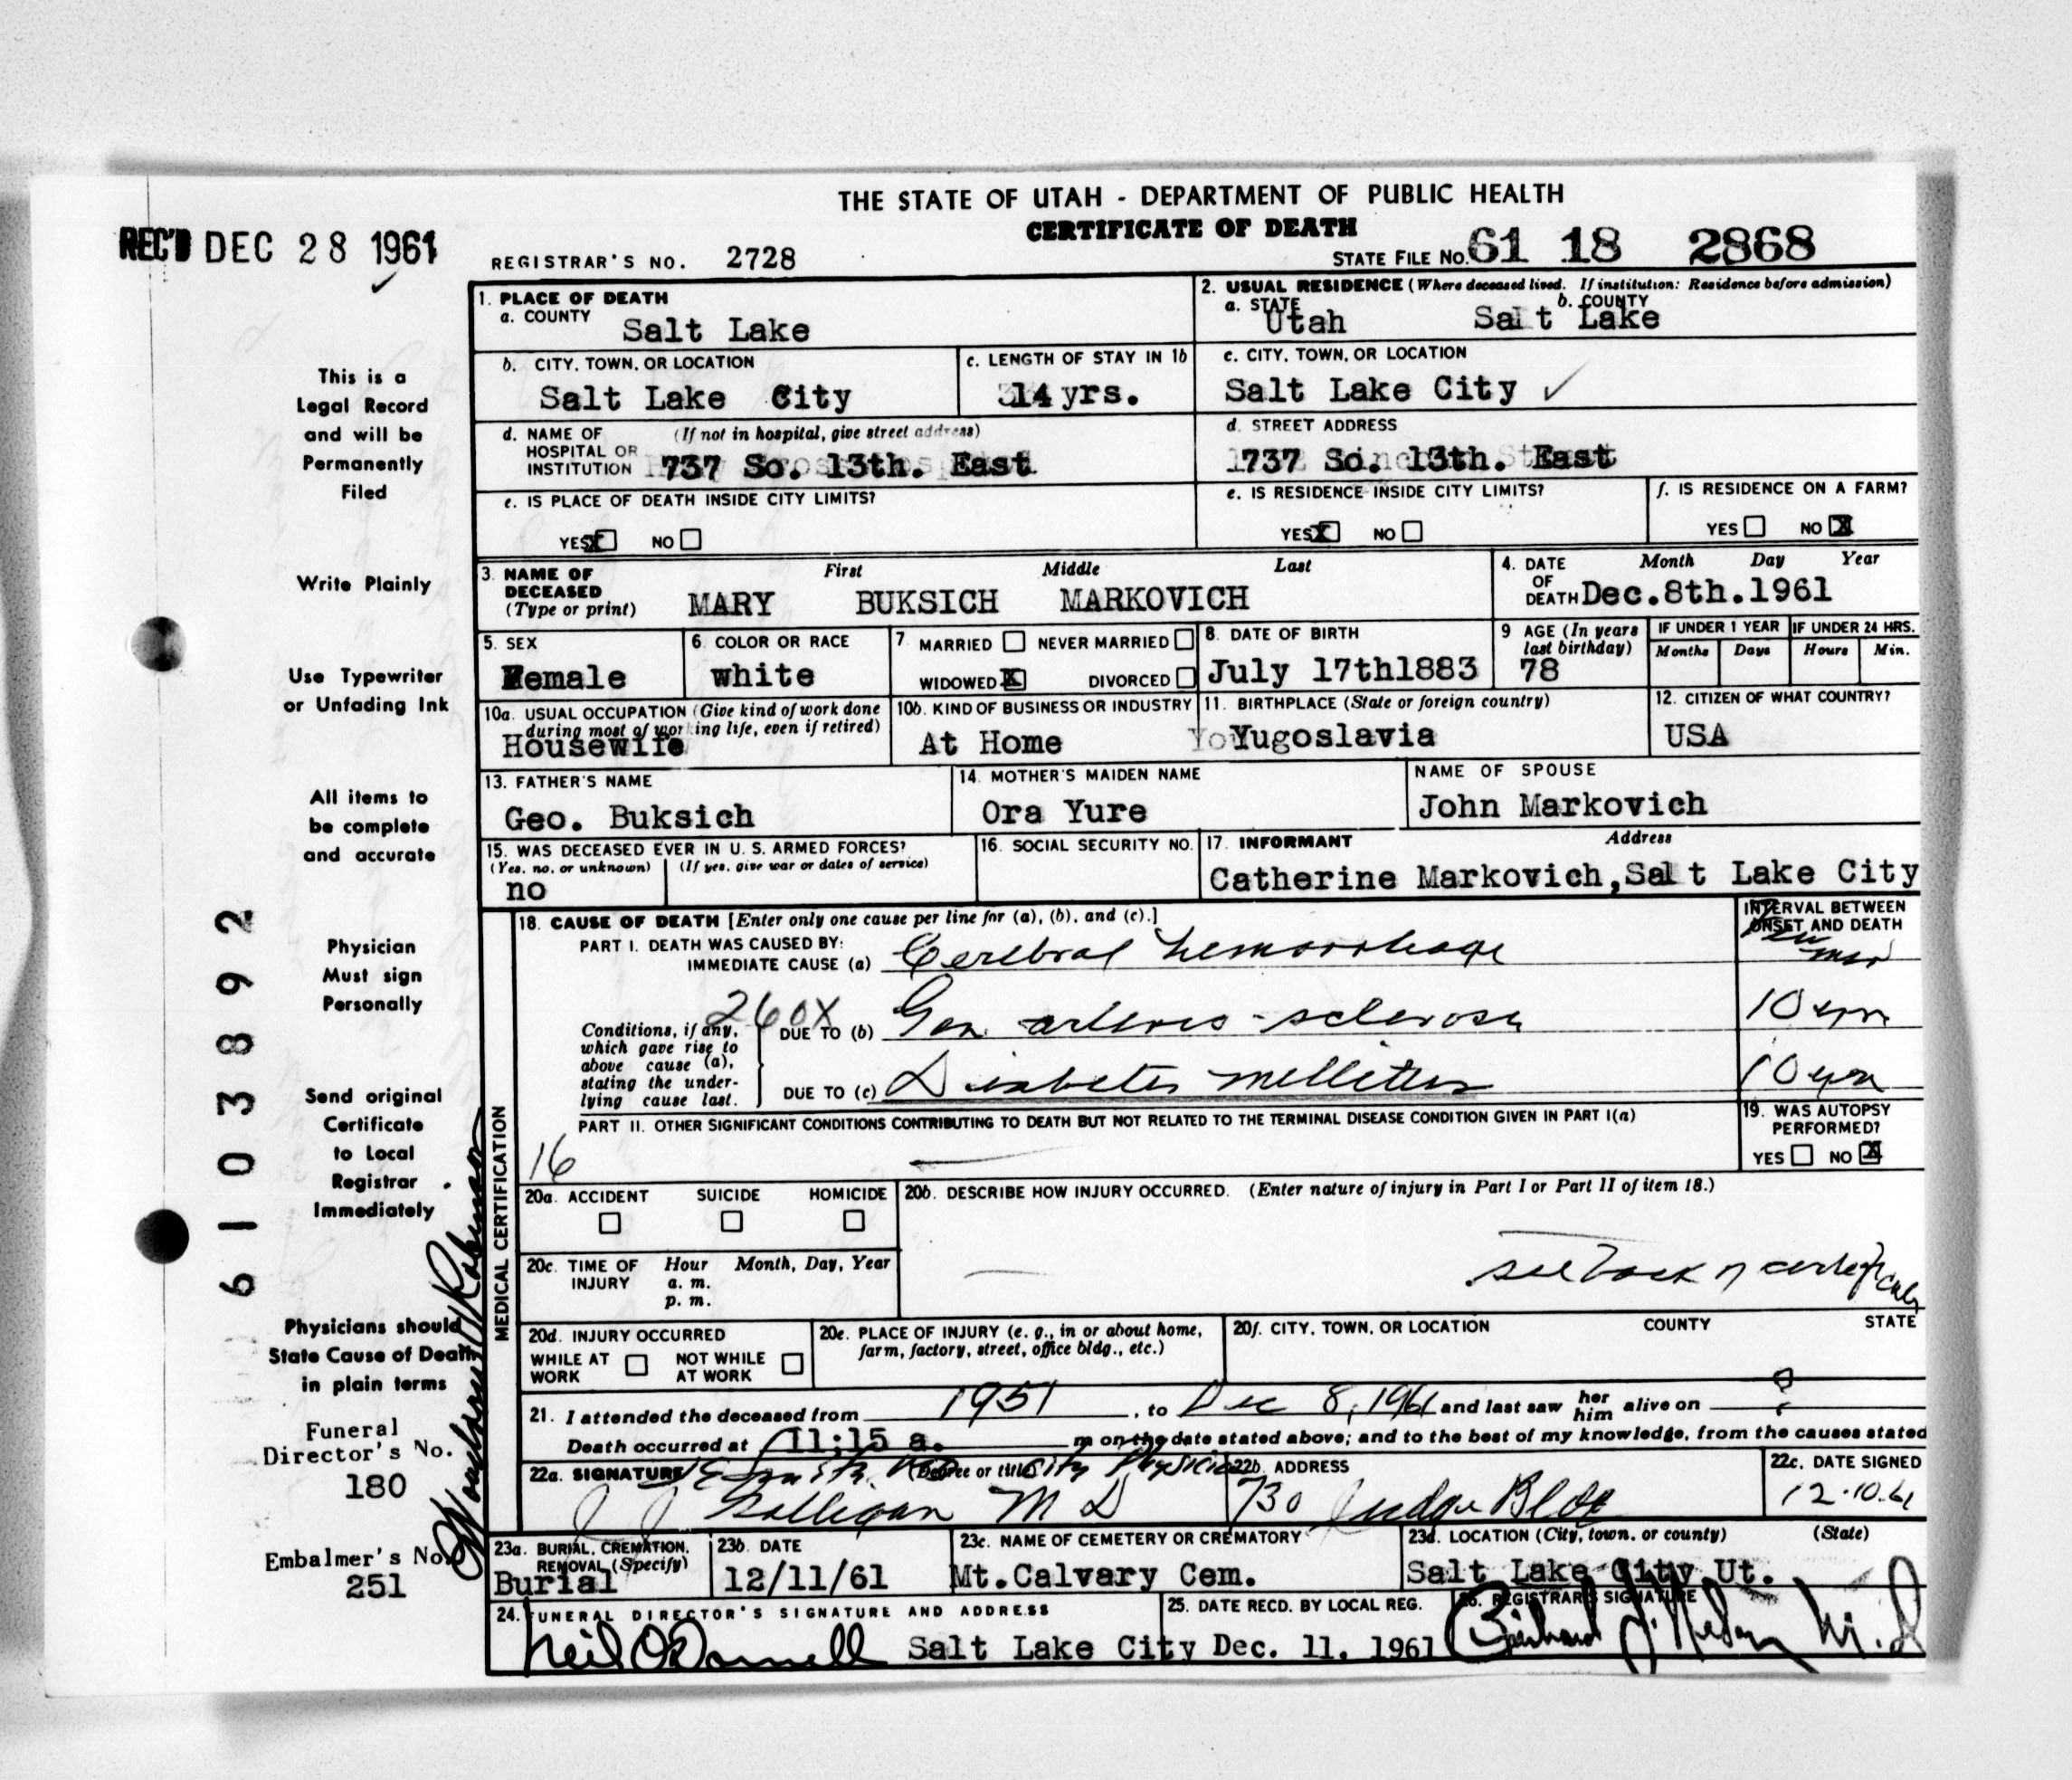 THE STATE OF UTAH - DEPARTMENT OF PUBLIC HEALTH
CERTIFICATE OF DEATH
REC'D DEC 28 1961
REGISTRAR'S NO. 2728
STATE FILE NO. 61 18 2868
1. PLACE OF DEATH
a. COUNTY
Salt Lake
2. USUAL RESIDENCE (Where deceased lived. If institution: Residence before admission)
a. STATE b. COUNTY
Utah Salt Lake
b. CITY, TOWN, OR LOCATION
Salt Lake City
c. LENGTH OF STAY IN 1b
14 yrs.
c. CITY, TOWN, OR LOCATION
Salt Lake City ✓
d. NAME OF HOSPITAL OR INSTITUTION (If not in hospital, give street address)
737 So. 13th. East
d. STREET ADDRESS
737 So. 13th. East
e. IS PLACE OF DEATH INSIDE CITY LIMITS?
YES X NO
e. IS RESIDENCE INSIDE CITY LIMITS?
YES X NO
f. IS RESIDENCE ON A FARM?
YES NO X
3. NAME OF DECEASED (Type or print)
First Middle Last
MARY BUKSICH MARKOVICH
4. DATE OF DEATH Month Day Year
Dec.8th.1961
5. SEX
Female
6. COLOR OR RACE
white
7. MARRIED NEVER MARRIED
WIDOWED X DIVORCED
8. DATE OF BIRTH
July 17th1883
9 AGE (In years last birthday)
78
IF UNDER 1 YEAR
Months Days
IF UNDER 24 HRS.
Hours Min.
10a. USUAL OCCUPATION (Give kind of work done during most of working life, even if retired)
Housewife
10b. KIND OF BUSINESS OR INDUSTRY
At Home
11. BIRTHPLACE (State or foreign country)
Yugoslavia
12. CITIZEN OF WHAT COUNTRY?
USA
13. FATHER'S NAME
Geo. Buksich
14. MOTHER'S MAIDEN NAME
Ora Yure
NAME OF SPOUSE
John Markovich
15. WAS DECEASED EVER IN U. S. ARMED FORCES?
(Yes, no, or unknown) (If yes, give war or dates of service)
no
16. SOCIAL SECURITY NO.
17. INFORMANT Address
Catherine Markovich, Salt Lake City
MEDICAL CERTIFICATION
18. CAUSE OF DEATH [Enter only one cause per line for (a), (b), and (c).]
INTERVAL BETWEEN ONSET AND DEATH
PART I. DEATH WAS CAUSED BY:
IMMEDIATE CAUSE (a) Cerebral hemorrhage
260X
Conditions, if any, which gave rise to above cause (a), stating the underlying cause last.
DUE TO (b) Gen. arterio-sclerosis 10 yrs
DUE TO (c) Diabetes mellitus 10 yrs
PART II. OTHER SIGNIFICANT CONDITIONS CONTRIBUTING TO DEATH BUT NOT RELATED TO THE TERMINAL DISEASE CONDITION GIVEN IN PART I(a)
16
19. WAS AUTOPSY PERFORMED?
YES NO X
20a. ACCIDENT SUICIDE HOMICIDE
20b. DESCRIBE HOW INJURY OCCURRED. (Enter nature of injury in Part I or Part II of item 18.)
see back of certificate
20c. TIME OF INJURY Hour Month, Day, Year
a. m.
p. m.
20d. INJURY OCCURRED
WHILE AT WORK NOT WHILE AT WORK
20e. PLACE OF INJURY (e. g., in or about home, farm, factory, street, office bldg., etc.)
20f. CITY, TOWN, OR LOCATION COUNTY STATE
21. I attended the deceased from 1951, to Dec 8, 1961 and last saw her him alive on
Death occurred at 11:15 a. m on the date stated above; and to the best of my knowledge, from the causes stated
22a. SIGNATURE (Degree or title) City Physician
J J Galligan M D
22b. ADDRESS
730 Judge Bldg
22c. DATE SIGNED
12-10-61
23a. BURIAL, CREMATION, REMOVAL (Specify)
Burial
23b. DATE
12/11/61
23c. NAME OF CEMETERY OR CREMATORY
Mt.Calvary Cem.
23d. LOCATION (City, town, or county) (State)
Salt Lake City Ut.
24. FUNERAL DIRECTOR'S SIGNATURE AND ADDRESS
Neil O'Donnell Salt Lake City
25. DATE RECD. BY LOCAL REG.
Dec. 11, 1961
26. REGISTRAR'S SIGNATURE
This is a
Legal Record
and will be
Permanently
Filed
Write Plainly
Use Typewriter
or Unfading Ink
All items to
be complete
and accurate
Physician
Must sign
Personally
Send original
Certificate
to Local
Registrar
Immediately
Physicians should
State Cause of Death
in plain terms
Funeral
Director's No.
180
Embalmer's No.
251
6 1 0 3 8 9 2